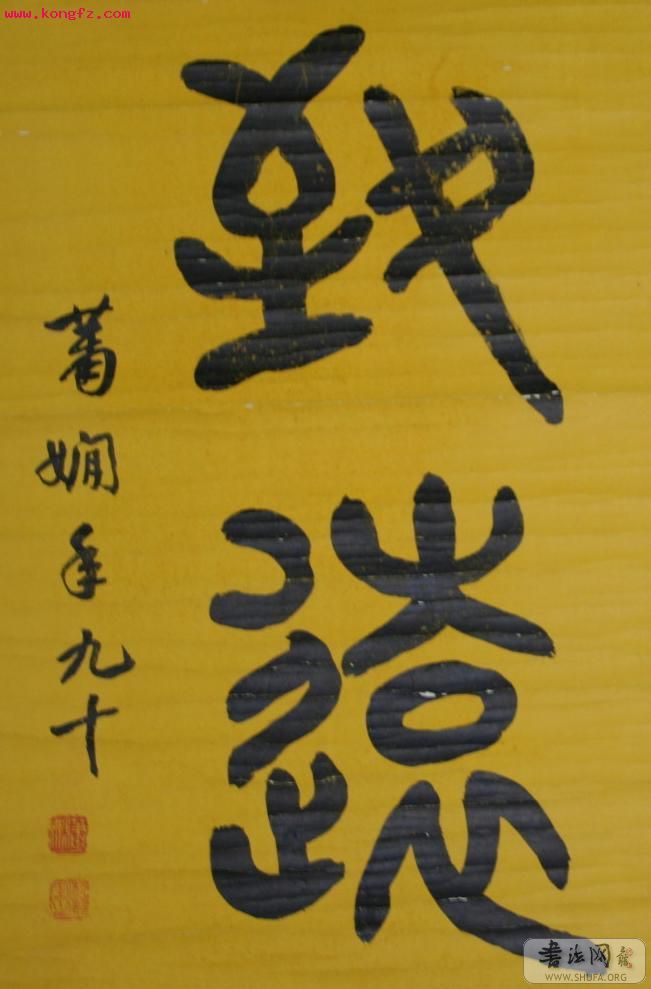 www.kongfz.com
致遠
蕭嫻年九十
書法网
WWW.SHUFA.ORG